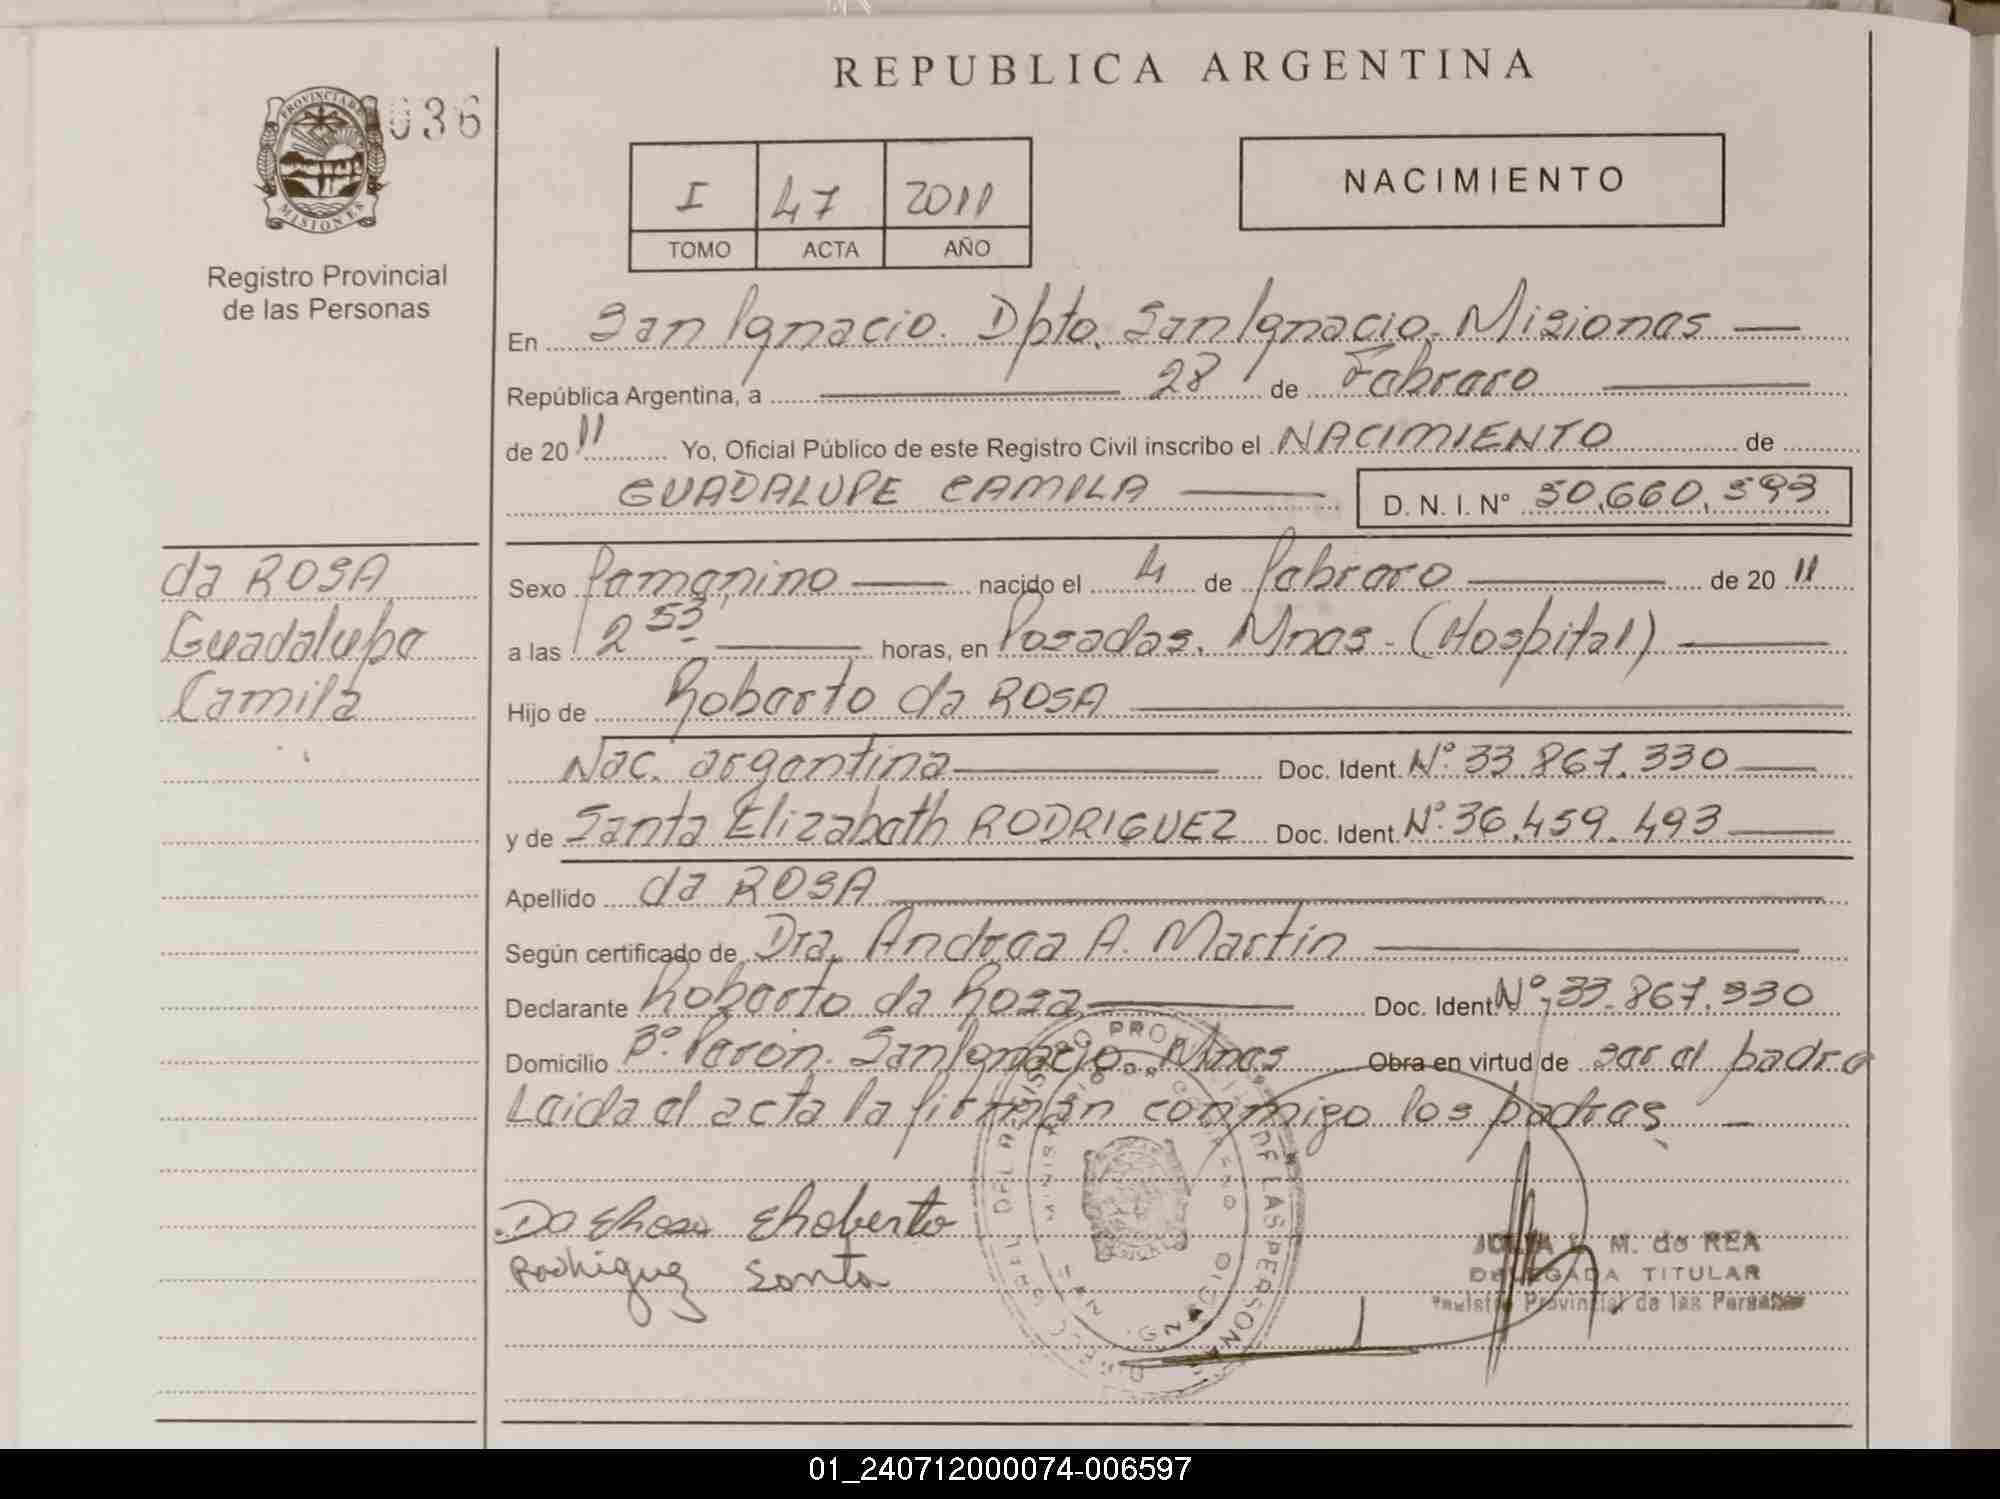 REPUBLICA ARGENTINA
PROVINCIA DE MISIONES
036
Registro Provincial
de las Personas
I 47 2011
TOMO ACTA AÑO
NACIMIENTO
En San Ignacio. Dpto. San Ignacio. Misiones
República Argentina, a 28 de Febrero
de 2011 Yo, Oficial Público de este Registro Civil inscribo el NACIMIENTO de
GUADALUPE CAMILA D. N. I. Nº 50.660.593
da ROSA
Guadalupe
Camila
Sexo femenino nacido el 4 de febrero de 2011
a las 2 53 horas, en Posadas. Mnes - (Hospital)
Hijo de Roberto da ROSA
Nac. argentina Doc. Ident. Nº 33.867.330
y de Santa Elizabeth RODRIGUEZ Doc. Ident. Nº 36.459.493
Apellido da ROSA
Según certificado de Dra. Andrea A. Martin
Declarante Roberto da Rosa Doc. Ident. Nº 33.867.330
Domicilio Bº Peron. San Ignacio. Mnes Obra en virtud de ser el padre
Leida el acta la firman conmigo los padres
Da Rosa Roberto
Rodriguez Santa
M. de REA
DELEGADA TITULAR
Registro Provincial de las Personas
01_240712000074-006597